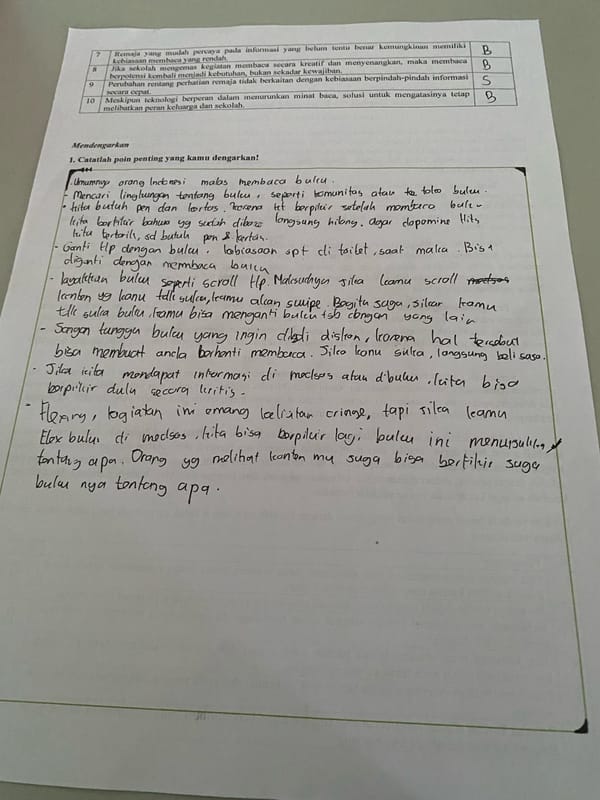 7 Remaja yang mudah percaya pada informasi yang belum tentu benar kemungkinan memiliki B
kebiasaan membaca yang rendah.
8 Jika sekolah mengemas kegiatan membaca secara kreatif dan menyenangkan, maka membaca B
berpotensi kembali menjadi kebutuhan, bukan sekadar kewajiban.
9 Perubahan rentang perhatian remaja tidak berkaitan dengan kebiasaan berpindah-pindah informasi S
secara cepat.
10 Meskipun teknologi berperan dalam menurunkan minat baca, solusi untuk mengatasinya tetap B
melibatkan peran keluarga dan sekolah.
Mendengarkan
1. Catatlah poin penting yang kamu dengarkan!
- Umumnya orang Indonesi malas membaca buku.
- Mencari lingkungan tentang buku, seperti komunitas atau ke toko buku.
- kita butuh pen dan kertas. karena kt berpikir setelah membaca buku
kita berfikir bahwa yg sudah dibaca langsung hilang. Agar dopamine Hits
kita tertarik, sd butuh pen & kertas.
- Ganti Hp dengan buku. kebiasaan spt di toilet, saat makan. Bisa
diganti dengan membaca buku
- layakkan buku seperti scroll Hp. Maksudnya jika kamu scroll medsos
konten yg kamu tdk suka, kamu akan swipe. Begitu juga, jikar kamu
tdk suka buku, kamu bisa menganti buku tsb dengan yang lain
- Jangan tunggu buku yang ingin dibeli diskon, karena hal tersebut
bisa membuat anda berhenti membaca. Jika kamu suka, langsung beli saja.
- Jika kita mendapat informasi di medsos atau dibuku, kita bisa
berpikir dulu secara kritis.
- Flexing, kegiatan ini emang keliatan cringe, tapi jika kamu
Flex buku di medsos, kita bisa berpikir lagi buku ini
tentang apa. Orang yg melihat konten mu juga bisa berfikir juga
buku nya tentang apa.